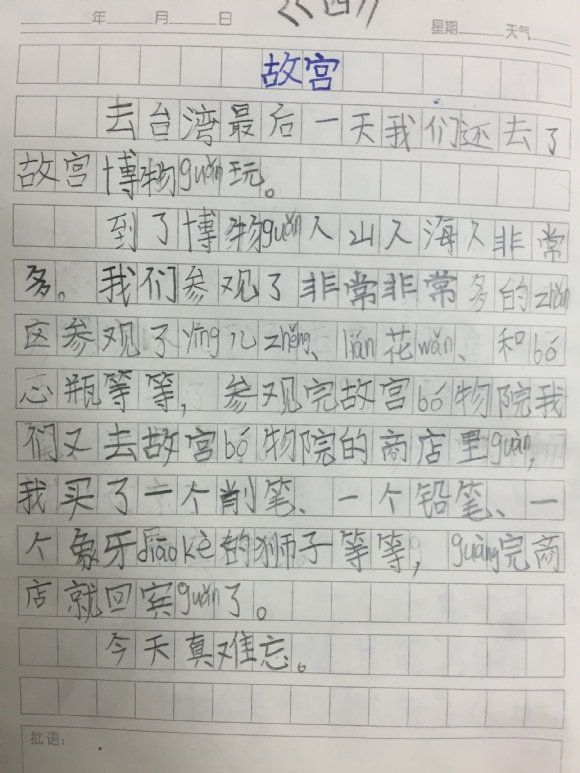 《四》
年 月 日 星期 天气
故宫
去台湾最后一天我们还去了
故宫博物guǎn玩。
到了博物guǎn人山人海人非常
多。我们参观了非常非常多的zhǎn
区参观了yīng儿zhěng、lián花wǎn、和bó
心瓶等等,参观完故宫bó物院我
们又去故宫bó物院的商店里guàng,
我买了一个削笔、一个铅笔、一
个象牙diāo kè的狮子等等,guàng完商
店就回宾guǎn了。
今天真难忘。
批语: